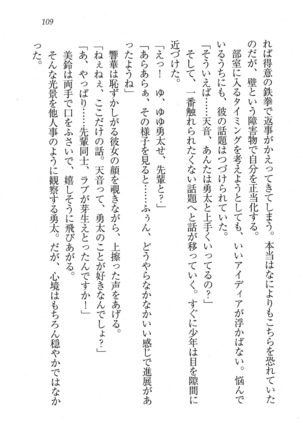 109
れば得意の鉄拳で返事がかえってきてしまう。本当はなによりもこちらを恐れていた
のだが、壁という障害物で自分を正当化する。
部室に入るタイミングを考えようとしても、いいアイディアが浮かばない。悩んで
いるうちにも、彼の話題はつづけられていた。
そして、一番触れられたくない話題へと話が移っていく。すぐに少年は目を隙間に
近づけた。
「そういえば……天音、あんたは勇太と上手くいってるの?」
「えっ! ゆ、ゆゆ勇太せ、先輩と?」
「あらあらぁ、その様子を見ると……ふぅん、どうやらなかなかいい感じで進展があ
ったようね」
響華は恥ずかしがる彼女の顔を覗きながら、上擦った声をあげる。
「ねぇねぇ、ここだけの話。天音って、勇太のことが好きなんでしょ?」
「あ、やっぱり……先輩同士、ラブが芽生えとったんですね!」
美鈴は両手で口をふさいで、嬉しそうに飛びあがる。
そんな光景を他人事のように観察する勇太。だが、心境はもちろん穏やかではなか
った。